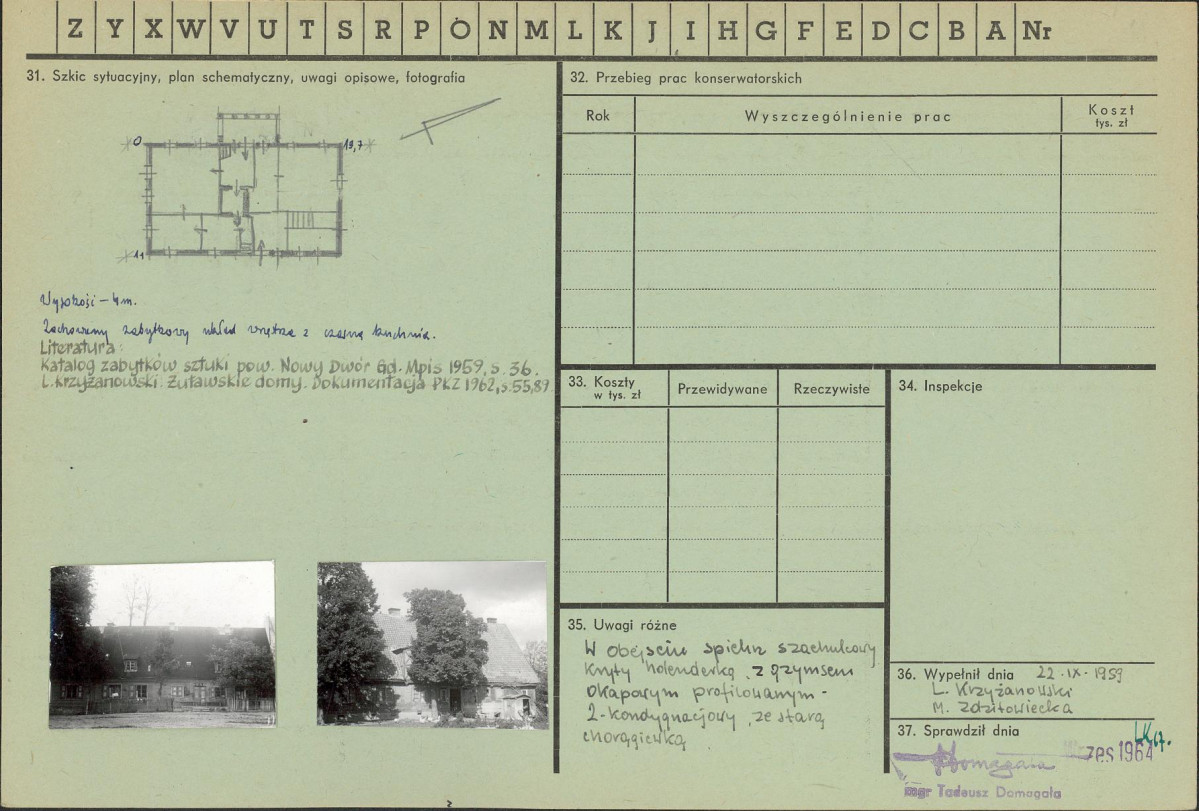 Z Y X W V U T S R P O N M L K J I H G F E D C B A Nr
31. Szkic sytuacyjny, plan schematyczny, uwagi opisowe, fotografia
0
19,7
11
Wysokość – 4m.
Zachowany zabytkowy układ wnętrza z czarną kuchnią.
Literatura:
Katalog zabytków sztuki pow. Nowy Dwór Gd. Mpis 1959, s. 36.
L. Krzyżanowski. Żuławskie domy. Dokumentacja PKZ 1962, s. 55, 89
32. Przebieg prac konserwatorskich
Rok
Wyszczególnienie prac
Koszt
tys. zł
33. Koszty
w tys. zł
Przewidywane
Rzeczywiste
34. Inspekcje
35. Uwagi różne
W obejściu spichrz szachulcowy
kryty holenderką, z gzymsem
okapowym profilowanym -
2-kondygnacjowy, ze starą
chorągiewką.
36. Wypełnił dnia 22 · IX · 1959
L. Krzyżanowski
M. Zdzitowiecka
37. Sprawdził dnia
1964
Domagała
mgr Tadeusz Domagała